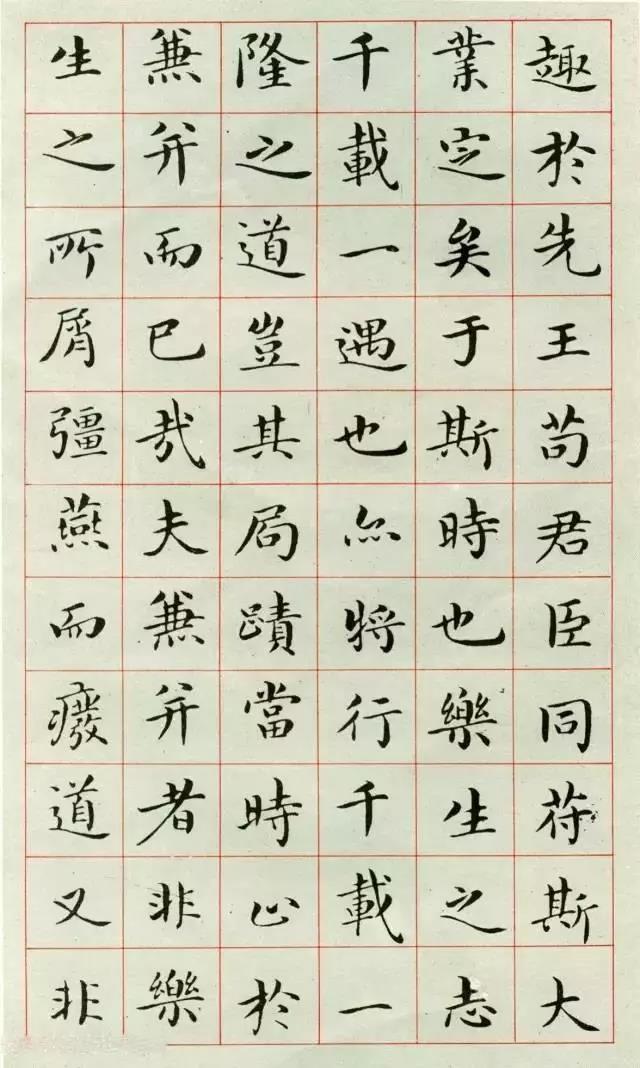 趣於先王苟君臣同苻斯大
業定矣于斯時也樂生之志
千載一遇也亦將行千載一
隆之道豈其局蹟當時止於
兼并而已哉夫兼并者非樂
生之所屑彊燕而癈道又非